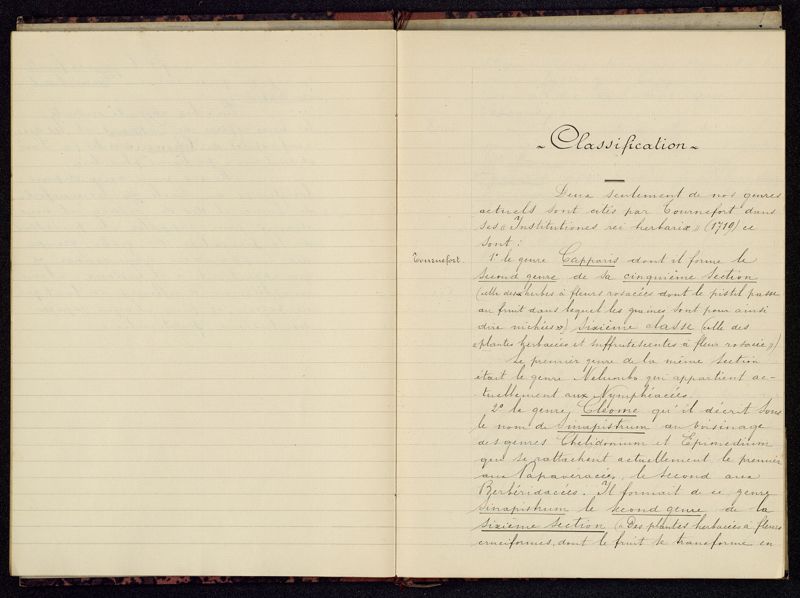 ~ Classification ~
Deux seulement de nos genres
actuels sont cités par Tournefort dans
ses « Institutiones rei herbariæ » (1719) ce
sont :
Tournefort.
1º le genre Capparis dont il forme le
second genre de sa cinquième section
(celle des « herbes à fleurs rosacées dont le pistil passe
au fruit dans lequel les graines sont pour ainsi
dire nichées »), sixième classe (celle des
« plantes herbacées et suffrutescentes à fleur rosacée »)
Le premier genre de la même section
était le genre Nelumbo qui appartient ac-
tuellement aux Nymphéacées.
2º le genre Cléome qu'il décrit sous
le nom de Sinapistrum au voisinage
des genres Chelidonium et Epimedium
qui se rattachent actuellement le premier
aux Papavéracées, le second aux
Berbéridacées. Il formait de ce genre
Sinapistrum le second genre de la
sixième section (« Des plantes herbacées à fleurs
cruciformes, dont le fruit se transforme en